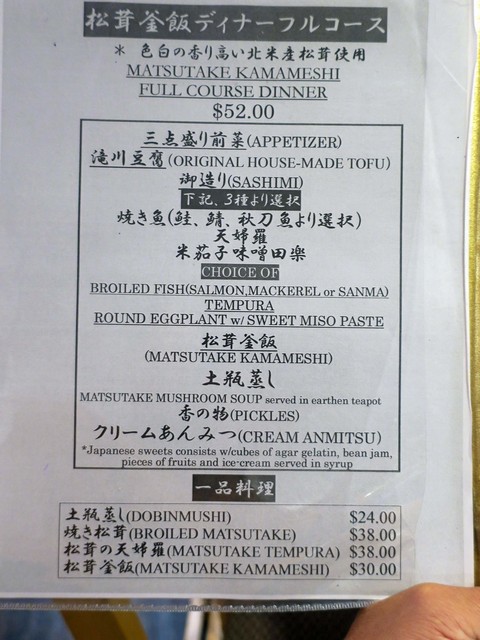 松茸釜飯ディナーフルコース
＊ 色白の香り高い北米産松茸使用
MATSUTAKE KAMAMESHI
FULL COURSE DINNER
$52.00
三点盛り前菜(APPETIZER)
滝川豆腐(ORIGINAL HOUSE-MADE TOFU)
御造り(SASHIMI)
下記、3種より選択
焼き魚(鮭、鯖、秋刀魚より選択)
天婦羅
米茄子味噌田楽
CHOICE OF
BROILED FISH(SALMON,MACKEREL or SANMA)
TEMPURA
ROUND EGGPLANT w/ SWEET MISO PASTE
松茸釜飯
(MATSUTAKE KAMAMESHI)
土瓶蒸し
MATSUTAKE MUSHROOM SOUP served in earthen teapot
香の物(PICKLES)
クリームあんみつ(CREAM ANMITSU)
*Japanese sweets consists w/cubes of agar gelatin, bean jam,
pieces of fruits and ice-cream served in syrup
一品料理
土瓶蒸し(DOBINMUSHI) $24.00
焼き松茸(BROILED MATSUTAKE) $38.00
松茸の天婦羅(MATSUTAKE TEMPURA) $38.00
松茸釜飯(MATSUTAKE KAMAMESHI) $30.00